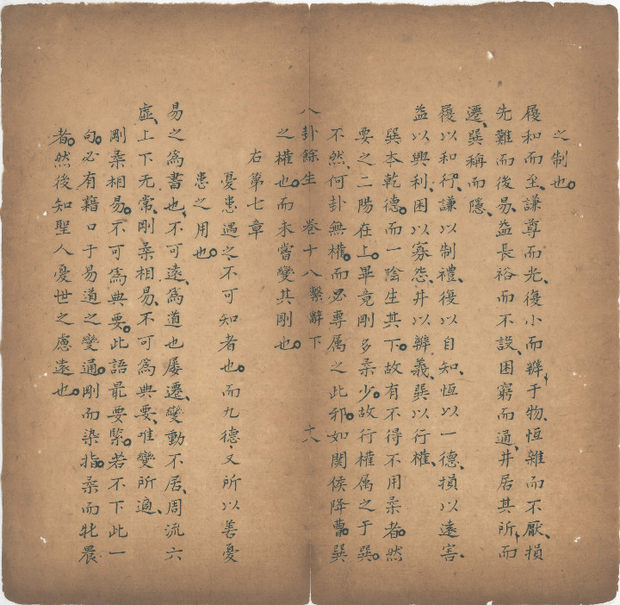 之制也
履和而至、謙尊而光、復小而辨于物、恒雜而不厭、損
先難而後易、益長裕而不設、困窮而通、井居其所而
遷、巽稱而隱、
履以和行、謙以制禮、復以自知、恒以一德、損以遠害、
益以興利、困以寡怨、井以辨義、巽以行權、
巽本乾德而一陰生其下故有不得不用柔者。然
要之二陽在上。畢竟剛多柔少。故行權属之于巽。
不然、何卦無權。而必專属之此邪。如関侯降曹。巽
八卦餘生 卷十八繫辭下 十八
之權也。而未嘗變其剛也。
右第七章
憂患遇之不可知者也。而九德又所以善憂
患之用也。
易之為書也、不可遠、為道也屡遷、變動不居、周流六
虛、上下无常、剛柔相易、不可為典要、唯變所適、
剛柔相易。不可為典要。此語最要緊。若不下此一
句。必有藉口于易道之變通。剛而染指。柔而牝晨
者。然後知聖人憂世之慮遠也。